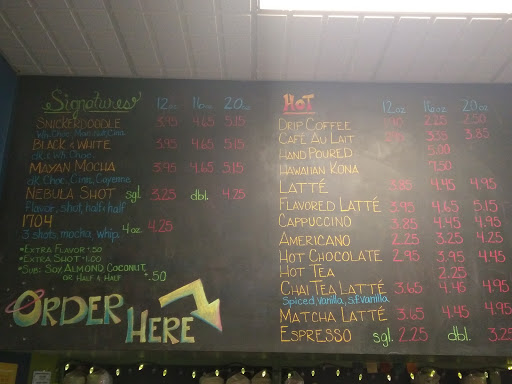 Signatures 12oz 16oz 20oz
Snickerdoodle 3.95 4.65 5.15
Wh. Choc, Macadamia, Cinn.
Black & White 3.95 4.65 5.15
dk. & Wh. Choc.
Mayan Mocha 3.95 4.65 5.15
dk. Choc, Cinn., Cayenne
Nebula Shot sgl. 3.25 dbl. 4.25
Flavor, shot, half & half
1704 4oz 4.25
3 shots, mocha, whip.
*Extra Flavor +.50
*Extra Shot +1.00
*Sub: Soy, Almond, Coconut, or Half & Half +.50
Order Here
Hot 12oz 16oz 20oz
Drip Coffee 2.25 2.50
Café Au Lait 3.35 3.85
Hand Poured 5.00
Hawaiian Kona 7.50
Latté 3.85 4.45 4.95
Flavored Latté 3.95 4.65 5.15
Cappuccino 3.85 4.45 4.95
Americano 2.25 3.25 4.25
Hot Chocolate 2.95 3.95 4.45
Hot Tea 2.25
Chai Tea Latté 3.65 4.45 4.95
Spiced, Vanilla, S.F. Vanilla
Matcha Latté 3.65 4.45 4.95
Espresso sgl. 2.25 dbl. 3.25